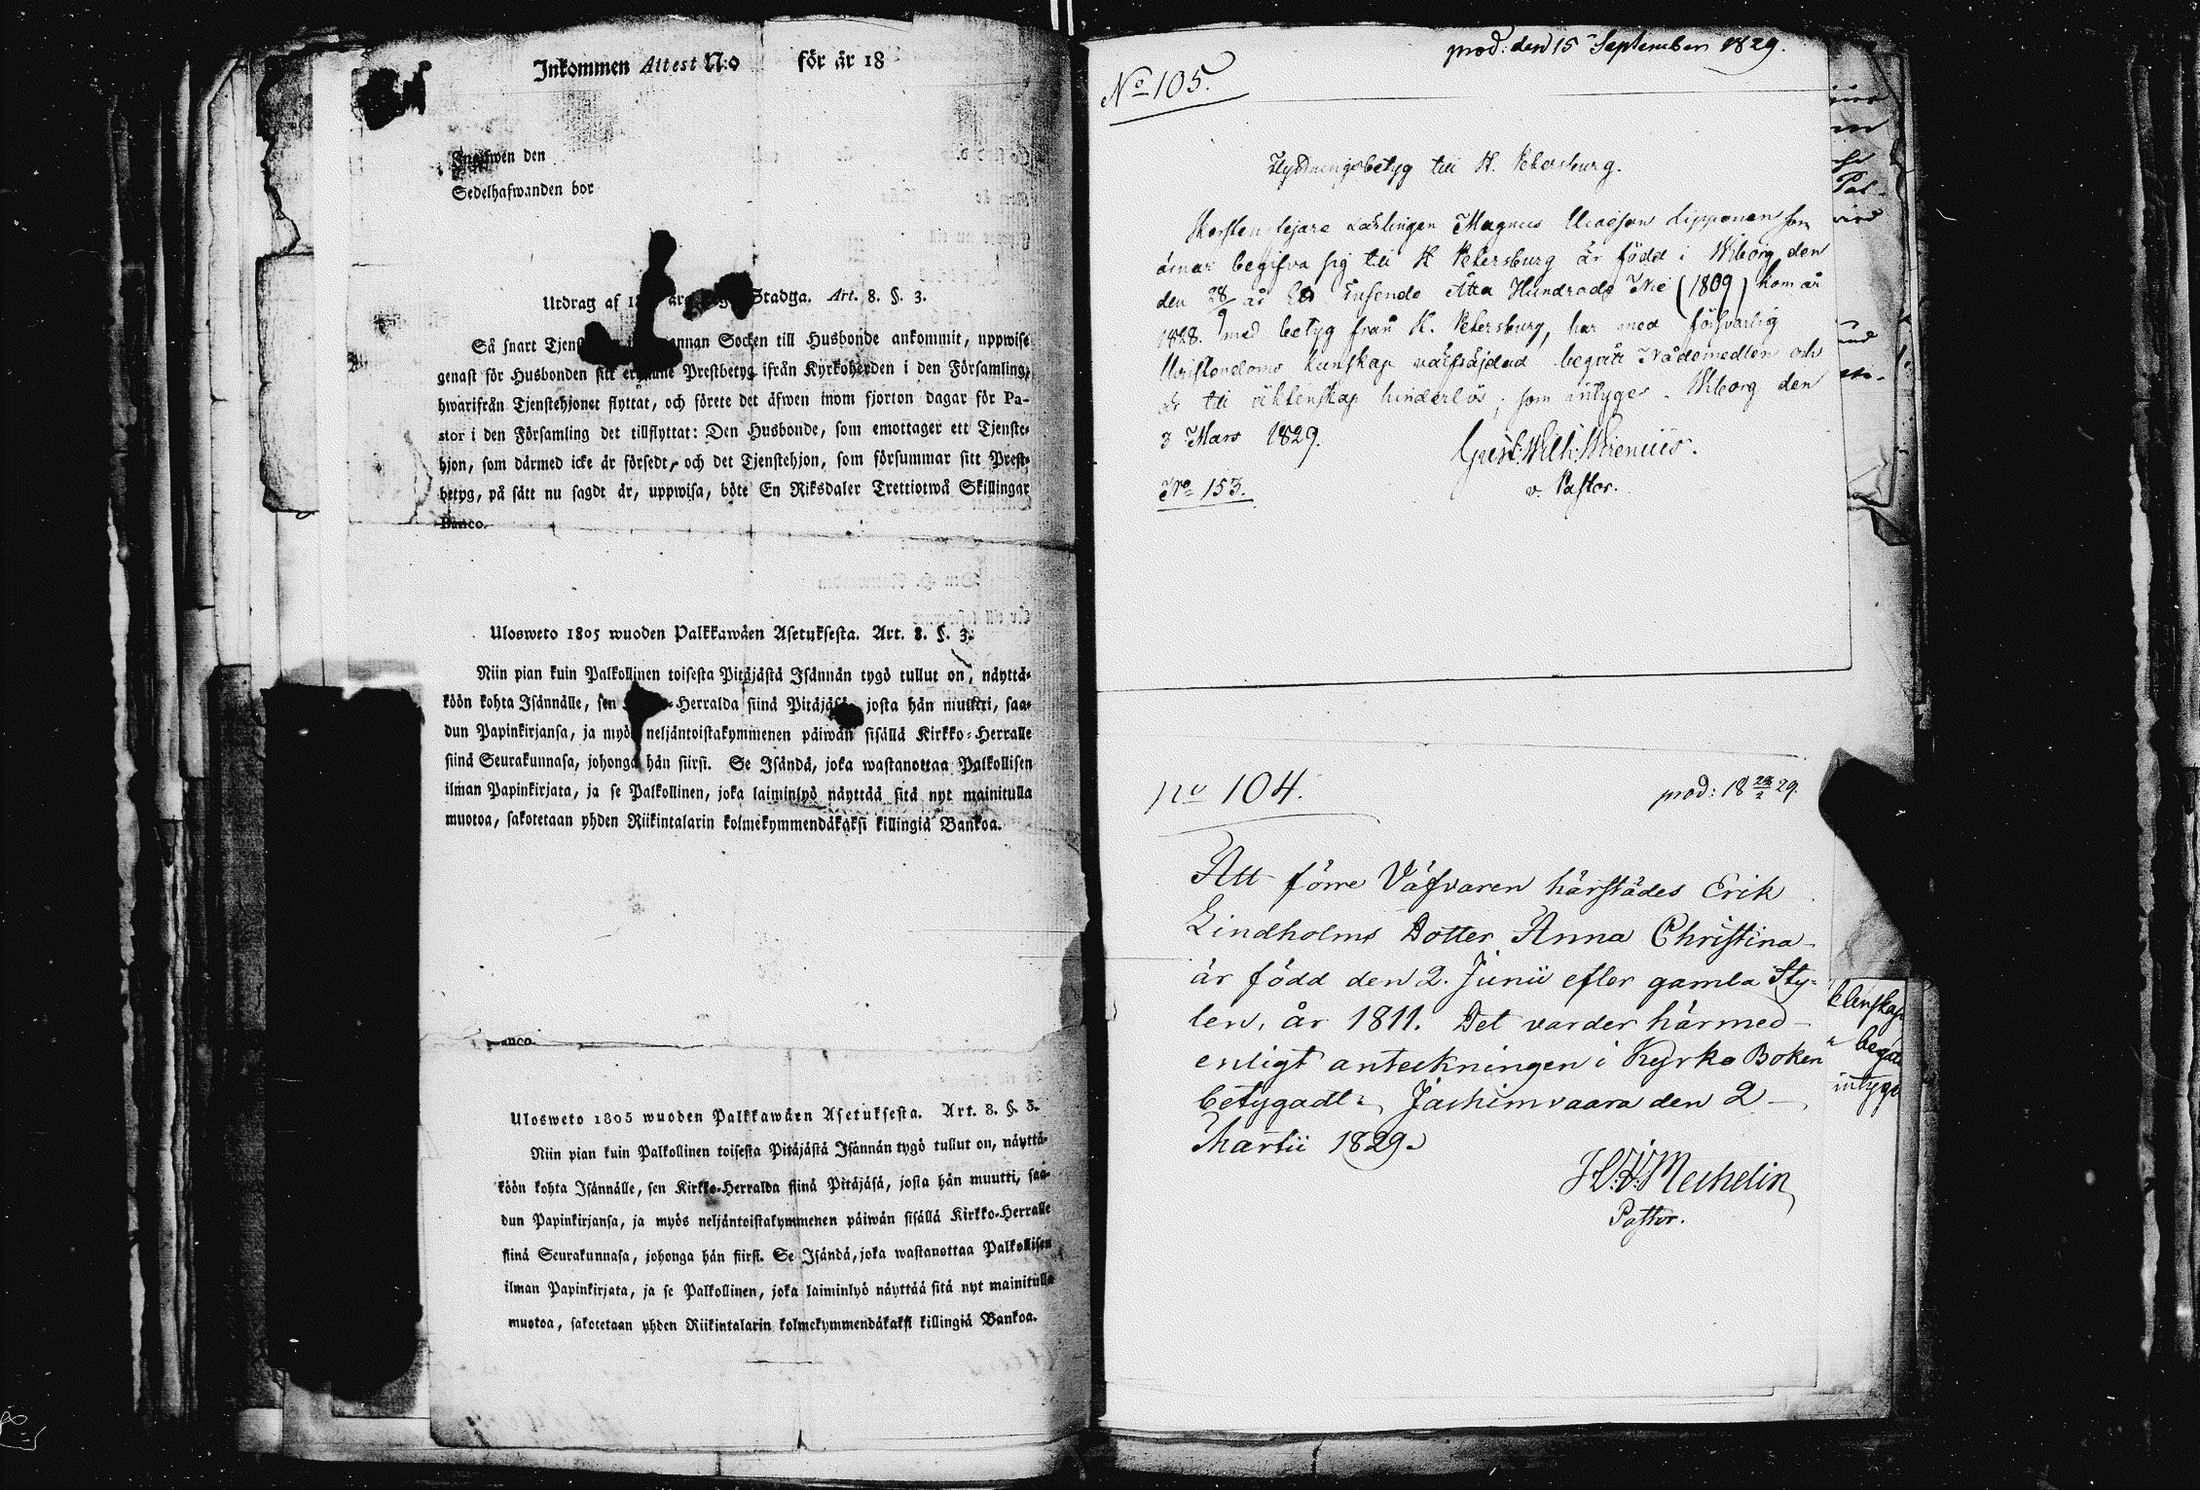 Inkommen Attest N:o för år 18
den
Sedelhafwanden bor
Utdrag af Stadga. Art. 8. §. 3.
Så snart annan Socken till Husbonde ankommit, uppwise
genast för Husbonden sitt Prestbetyg ifrån Kyrkoherden i den Församling,
hwarifrån Tjenstehjonet flyttat, och förete det äfwen inom fjorton dagar för Pa-
stor i den Församling det tillflyttat: Den Husbonde, som emottager ett Tjenste-
hjon, som därmed icke är försedt, och det Tjenstehjon, som försummar sitt Prest-
betyg, på sätt nu sagdt är, uppwisa, böte En Riksdaler Trettiotwå Skillingar
Banco.
Ulosweto 1805 wuoden Palkkawäen Asetuksesta. Art. 8. §. 3.
Niin pian kuin Palkollinen toisesta Pitäjästä Isännän tygö tullut on, näyttä-
köön kohta Isännälle, sen -Herralda siinä josta hän muutti, saa-
dun Papinkirjansa, ja myös neljäntoistakymmenen päiwän sisällä Kirkko-Herralle
siinä Seurakunnasa, johonga hän siirsi. Se Isändä, joka wastanottaa Palkollisen
ilman Papinkirjata, ja se Palkollinen, joka laiminlyö näyttää sitä nyt mainitulla
muotoa, sakotetaan yhden Riikintalarin kolmekymmendäkaksi killingiä Bankoa.
anco.
Ulosweto 1805 wuoden Palkkawäen Asetuksesta. Art. 8. §. 3.
Niin pian kuin Palkollinen toisesta Pitäjästä Isännän tygö tullut on, näyttä-
köön kohta Isännälle, sen Kirkko-Herralda siinä Pitäjäsä, josta hän muutti, saa-
dun Papinkirjansa, ja myös neljäntoistakymmenen päiwän sisällä Kirkko-Herralle
siinä Seurakunnasa, johonga hän siirsi. Se Isändä, joka wastanottaa Palkollisen
ilman Papinkirjata, ja se Palkollinen, joka laiminlyö näyttää sitä nyt mainitulla
muotoa, sakotetaan yhden Riikintalarin kolmekymmendäkaksi killingiä Bankoa.
prod: den 15 September 1829.
No 105.
Flyttningsbetyg till St. Petersburg.
Lärlingen Magnus Lipponen som
ämnar begifva sig till St Petersburg är född i Wiborg den
den 28/9 år Ett Tusende Åtta Hundrade Nie (1809) kom år
1828. med betyg från St. Petersburg, har med försvarlig
Christendoms kunskap begått Nådemedlen och
är till äktenskap hinderlös, som intygas. Wiborg den
3 Mars 1829.
Gust: Wilh: Wirenius.
v. Pastor.
No 153.
no 104.
prod: 18 23/2 29.
Att förre Väfvaren härstädes Erik
Lindholms Dotter Anna Christina
är född den 2. Junii efter gamla Sty-
len, år 1811. Det varder härmed
enligt anteckningen i Kyrko Boken
betygadt. Jachimvaara den 2
Martii 1829.
Mechelin
Pastor.